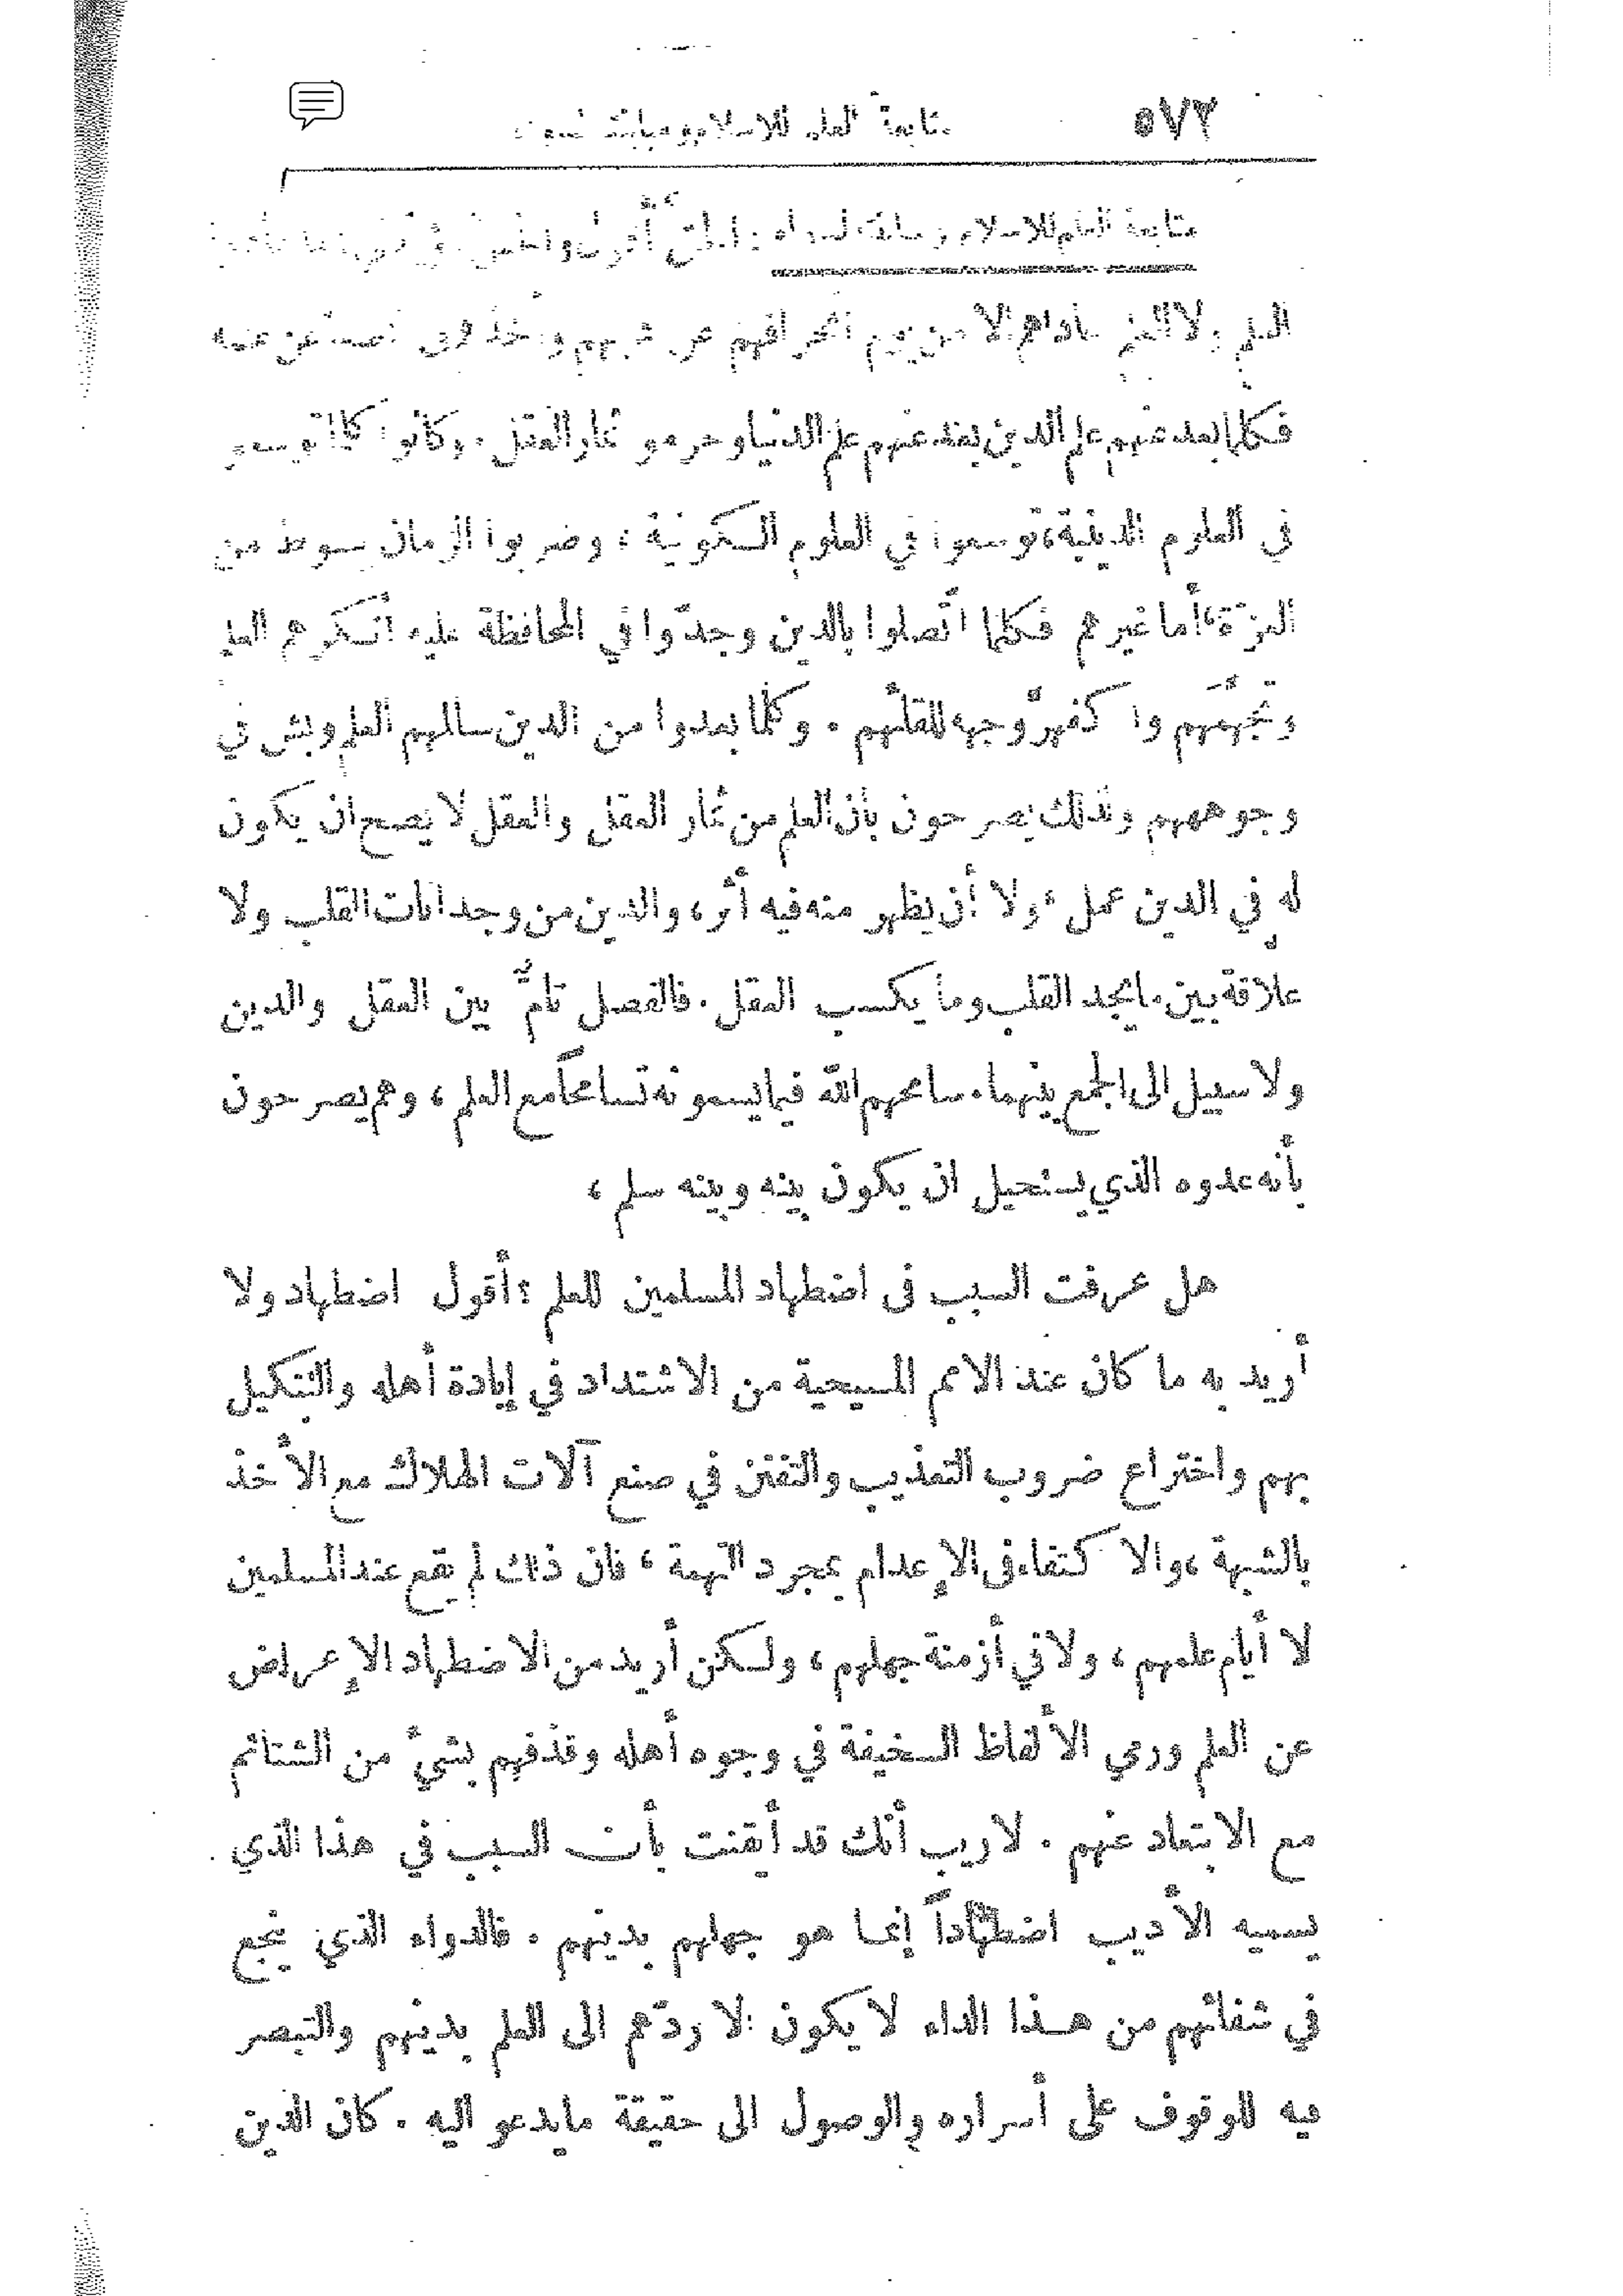 ٥٧٢ متابعة العلم للاسلام ومباينته
متابعة العلم للاسلام
العلم ولا العلم إلا من يوم انحرافهم عن
فكلما بعد عنهم علم الدين بعد عنهم علم الدنيا وحرموا ثمار العقل . وكانوا كلما توسعوا
في العلوم الدينية، توسعوا في العلوم الكونية ، وضربوا الزمان بسوط من
العزة، أما غيرهم فكلما اتّصلوا بالدين وجدّوا في المحافظة عليه أنكرهم العلم
وتجهّمهم واكفهرّ وجهه للقائهم . وكلما بعدوا من الدين سالمهم العلم وبش في
وجوههم ولذلك يصرحون بأن العلم من ثمار العقل والعقل لا يصح ان يكون
له في الدين عمل ، ولا أن يظهر منه فيه أثر، والدين من وجدانات القلب ولا
علاقة بين ما يجد القلب وما يكسب العقل . فالفصل تامٌّ بين العقل والدين
ولا سبيل الى الجمع بينهما. سامحهم الله فيما يسمونه تسامحاً مع العلم ، وهم يصرحون
بأنه عدوه الذي يستحيل ان يكون بينه وبينه سلم ،
هل عرفت السبب فى اضطهاد المسلمين للعلم ؟ أقول اضطهاد ولا
أريد به ما كان عند الامم المسيحية من الاشتداد في إبادة أهله والتنكيل
بهم واختراع ضروب التعذيب والتفنن في صنع آلات الهلاك مع الأخذ
بالشبهة ، والاكتفاء فى الإعدام بمجرد التهمة ، فان ذلك لم يقع عند المسلمين
لا أيام علمهم ، ولا في أزمنة جهلهم ، ولكن أريد من الاضطهاد الإعراض
عن العلم ورمي الألفاظ السخيفة في وجوه أهله وقذفهم بشيء من الشتائم
مع الابتعاد عنهم . لا ريب أنك قد أيقنت بأن السبب في هذا الذي
يسميه الأديب اضطهاداً إنما هو جهلهم بدينهم . فالدواء الذي ينجع
في شفائهم من هذا الداء لا يكون إلا ردّهم الى العلم بدينهم والتبصر
فيه للوقوف على أسراره والوصول الى حقيقة ما يدعو اليه . كان الدين